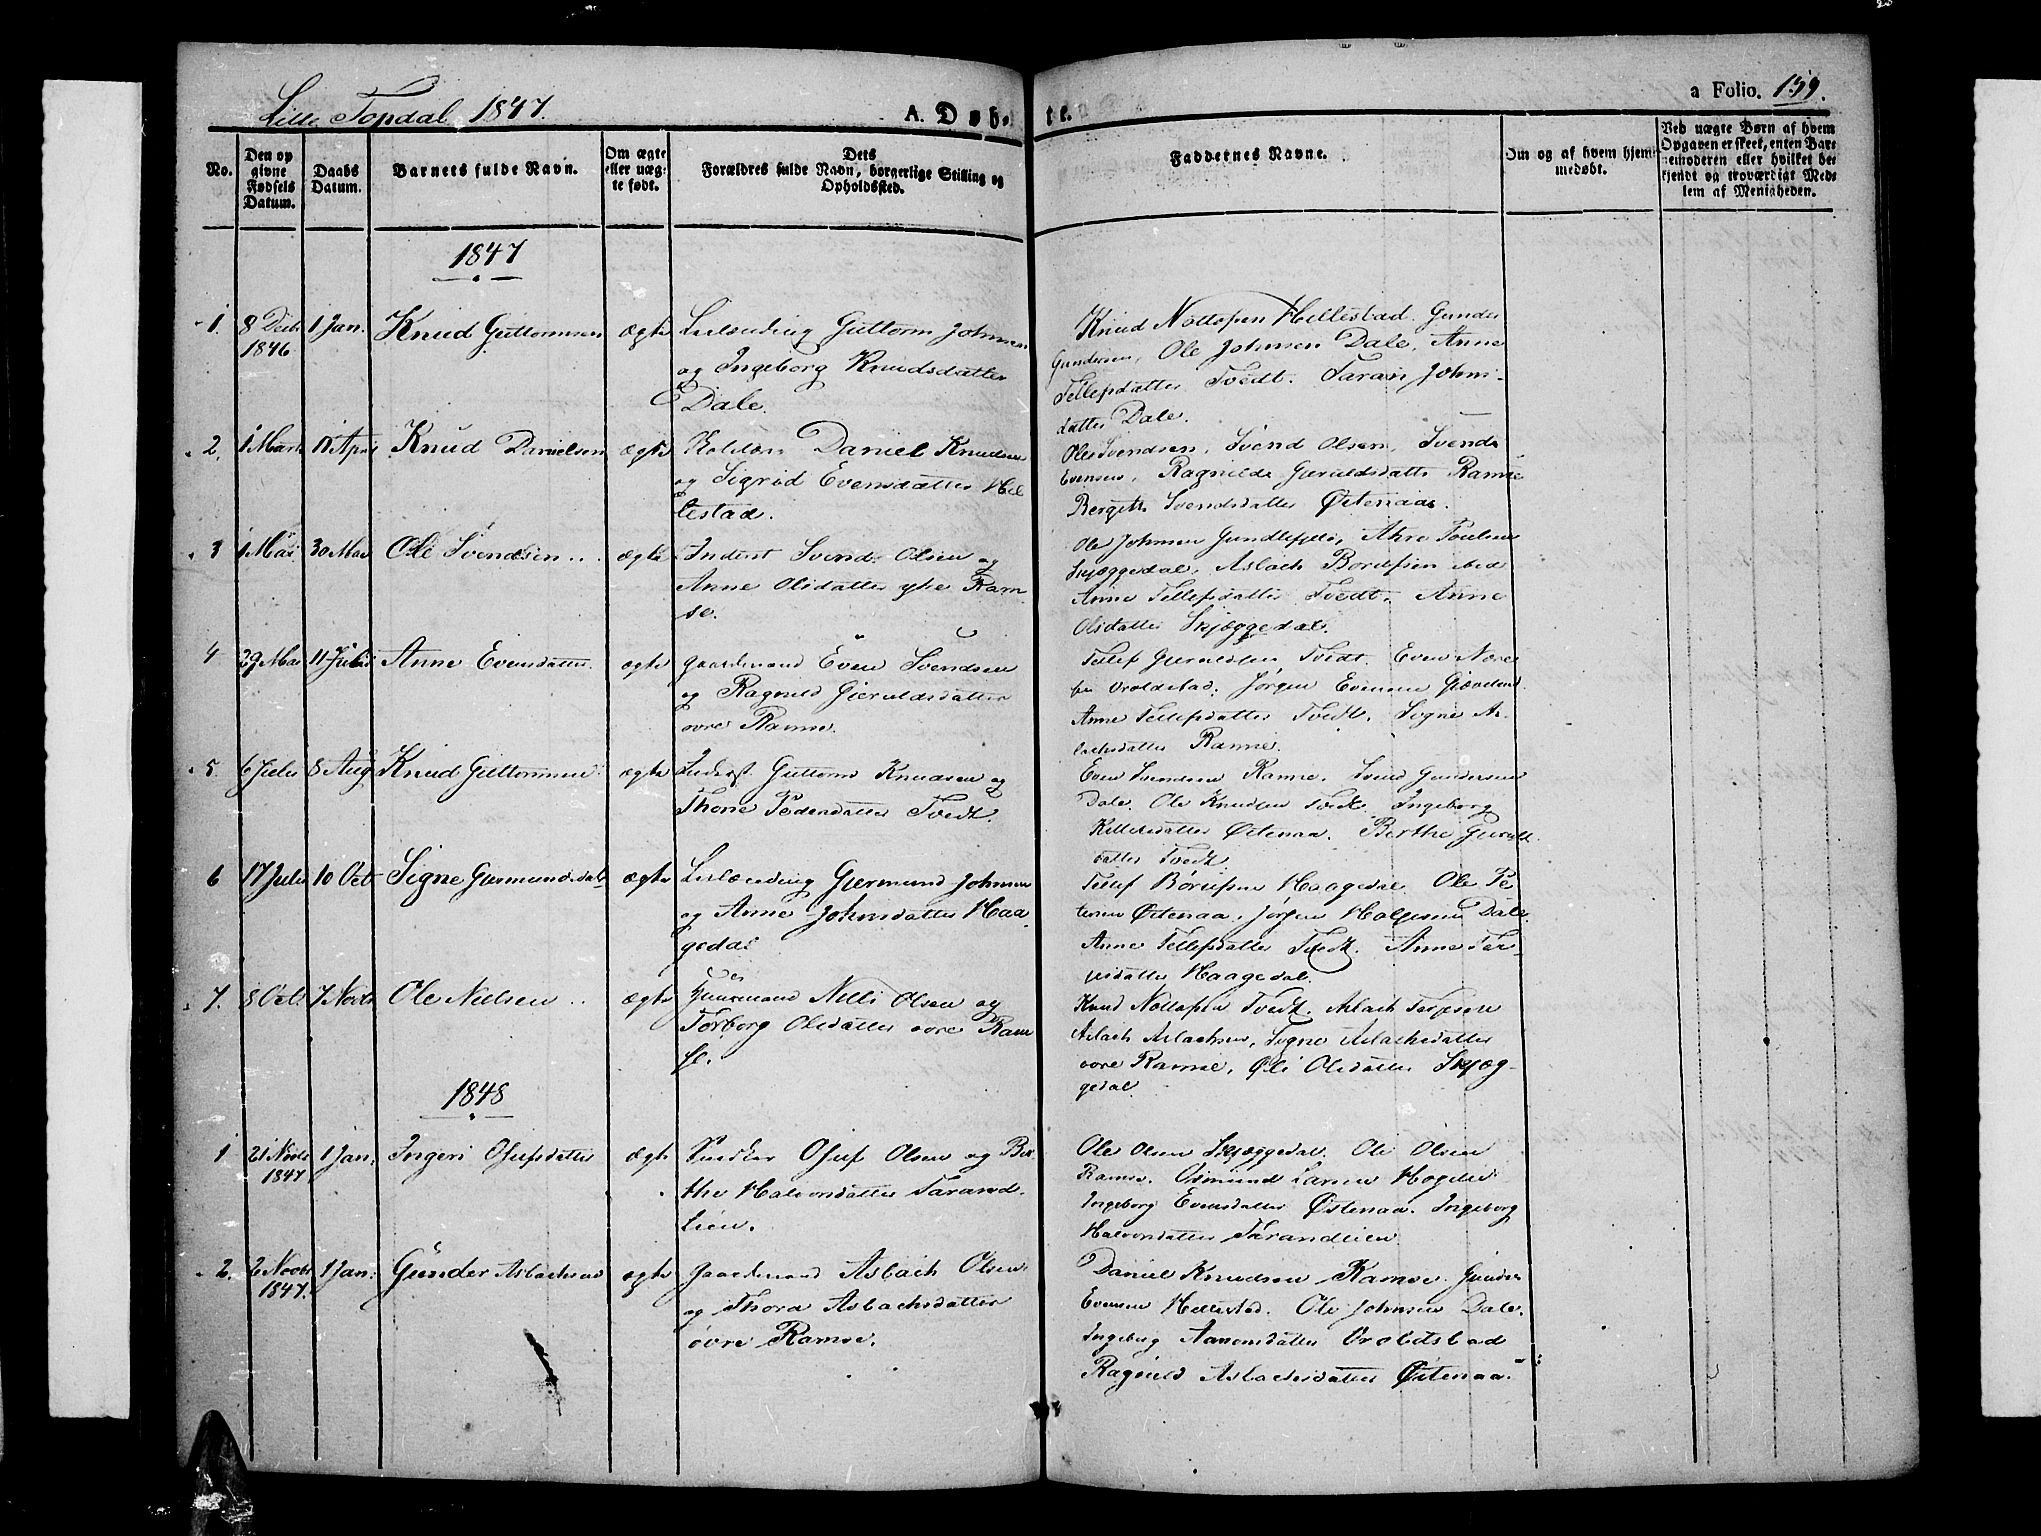 Lille Topdal 1847.
A. Døb-
te.
a Folio. 159.
No.
Den op
givne
Fødsels
Datum.
Daabs
Datum.
Barnets fulde Navn.
Om ægte
eller uæg-
te født.
Dets
Forældres fulde Navn, borgerlige Stilling og
Opholdssted.
Faddernes Navne.
Om og af hvem hjem-
medøbt.
Ved uægte Børn af hvem
Opgaven er skeet, enten Bar-
nemoderen eller hvilket be-
kjendt og troværdigt Med-
lem af Menigheden.
1847
1. 8 Decb. 1 Jan. Knud Guttormsen ægte Leilænding Guttorm Johnsen
1846
og Ingeborg Knudsdatter
Dale.
Knud Nottofsen Hillestad. Gunder
Gundersen, Ole Johnsen Dale, Anne
Tellefsdatter Tvedt. Taran Johns-
datter Dale.
2. 1 Marts April Knud Danielsen ægte Daniel Knudsen
og Sigrid Evensdatter Hil
lestad.
Ole Svendsen, Svend Olsen, Svend
Evensen, Ragnilde Gjeruldsdatter Ramse
Bergith Svendsdatter Østenaa.
3 1 Mai 30 Mai Ole Svendsen ægte Inderst Svend Olsen og
Anne Olsdatter Ram-
se.
Ole Johnsen
Skjæggedal, Aslach
Anne Tellefsdatter Tvedt, Anne
Olsdatter Skjæggedal.
4 29 Mai 11 Julii Anne Evensdatter ægte Gaardmand Even Svendsen
og Ragnild Gjeruldsdatter
øvre Ramse.
Tellef Gjeruldsen Tvedt. Even
Vroldstad. Jørgen Evensen
Anne Tellefsdatter Tvedt. Sogne As-
lachsdatter Ramse.
5. 6 Julii 8 Aug Knud Guttormsen ægte Inderst. Guttorm Knudsen og
Thone Pedersdatter Tvedt.
Even Svendsen Ramse. Svend Gundersen
Dale. Ole Knudsen Tvedt. Ingeborg
Østenaa. Berthe Gjerulds
datter Tvedt
6 17 Julii 10 Oct. Signe Gjermundsdatr ægte Leilænding Gjermund Johnsen
og Anne Johnsdatter Haa-
gedal
Haagedal. Ole Pe
tersen Østenaa. Jørgen Dale.
Anne Tellefsdatter Tvedt. Anne Ter-
jesdatter Haagedal.
7. 8 Oct. 7 Novb. Ole Nielsen ægte Huusmand Nills Olsen og
Torborg Olsdatter øvre Ram
se.
Knud Nottofsen Tvedt. Aslach Terjesen
Aslach Aslachsen, Signe Aslachsdatter
øvre Ramse, Olsdatter Skjæg-
gedal.
1848
1 21 Novbr 1 Jan. Ingeri Osufsdatter ægte Snedker Osuf Olsen og Ber
1847
the Halvorsdatter Tarand-
lien.
Ole Olsen Skjæggedal. Ole Olsen
Ramse. Osmund Larsen
Ingeborg Evensdatter Østenaa. Ingeborg
Halvorsdatter Tarandlien
2. 2 Novbr 1 Jan. Gunder Aslachsen ægte Gaardmand Aslach Olsen
1847.
og Thora Aslachsdatter
øvre Ramse.
Daniel Knudsen Ramse. Gunder
Evensen Hillestad. Ole Johnsen Dale.
Ingeborg Aanonsdatter Vroldstad
Ragnild Aslachsdatter Østenaa.